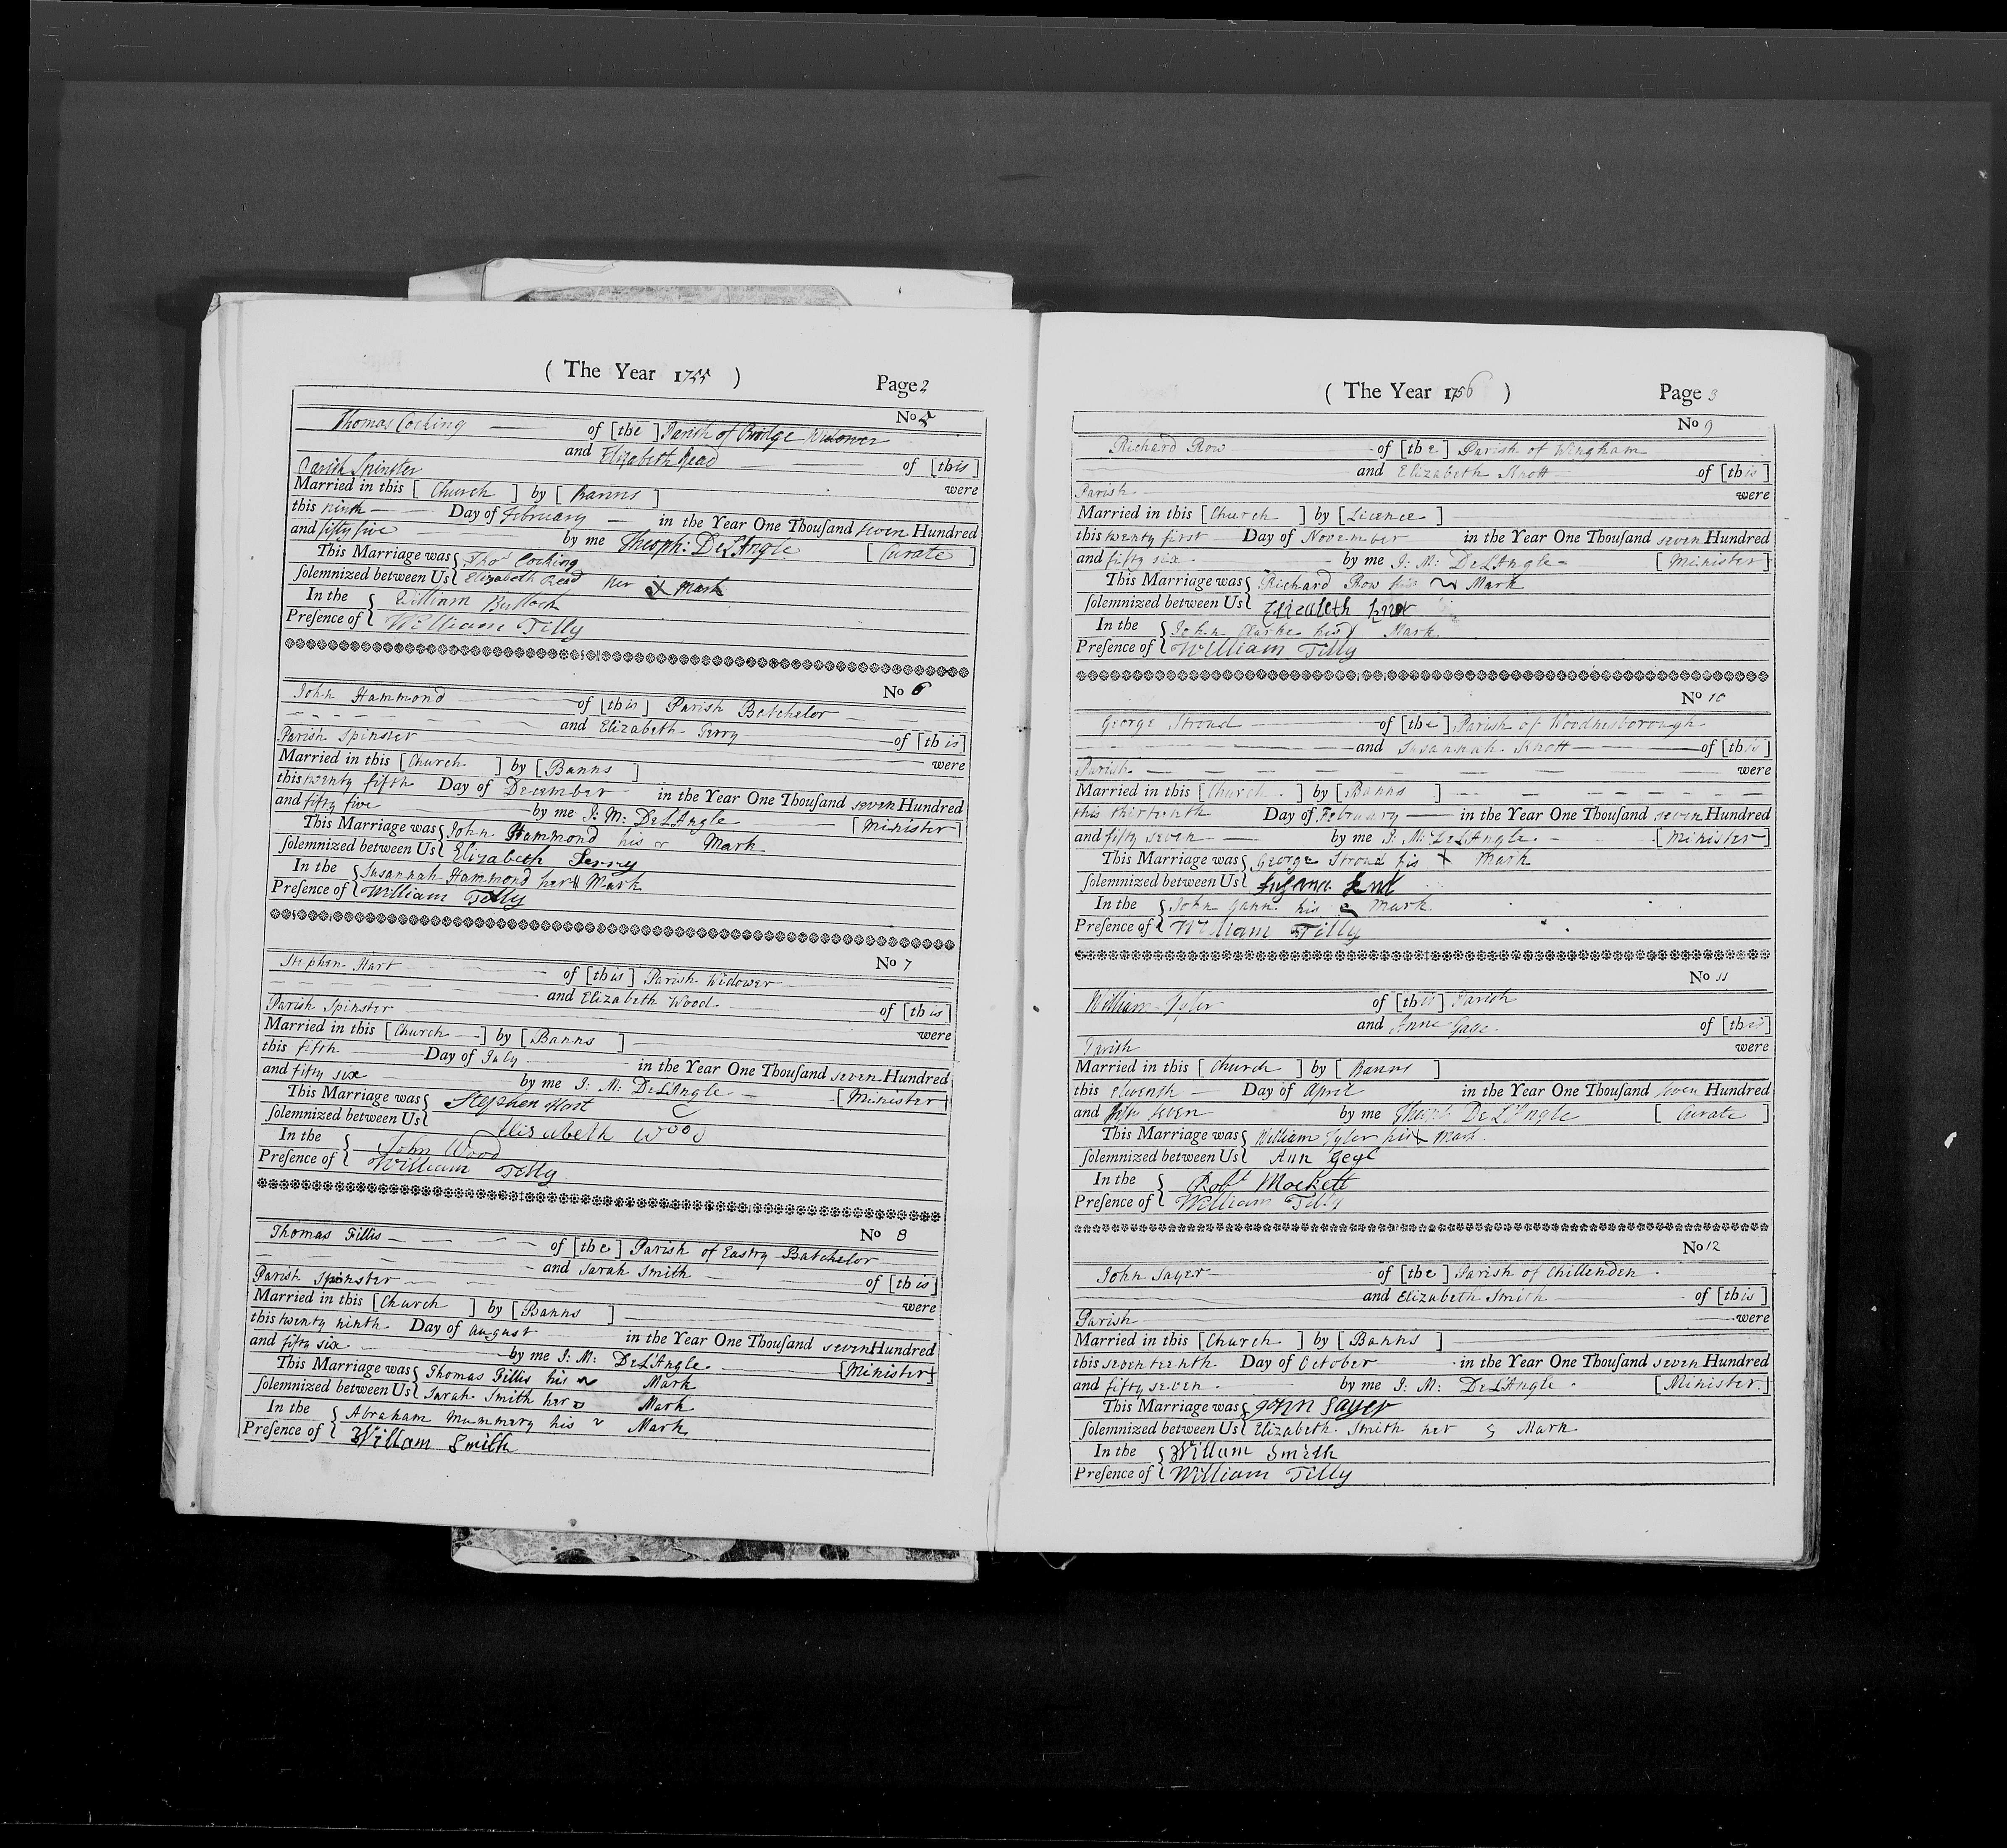 ( The Year 1755 )
Page 2
No 5
Thomas Cocking of [the] Parish of Bridge Widower
and Elizabeth Read of [this]
Parish Spinster were
Married in this [Church] by [Banns]
this ninth Day of February in the Year One Thouſand seven Hundred
and fifty five by me Theoph: DeL'Angle [Curate]
This Marriage was { Thos Cocking
ſolemnized between Us { Elizabeth Read her X Mark
In the { William Bullock
Preſence of { William Tilly
No 6
John Hammond of [this] Parish Batchelor
and Elizabeth Terry of [this]
Parish Spinster were
Married in this [Church] by [Banns]
this twenty fifth Day of December in the Year One Thouſand seven Hundred
and fifty five by me I: M: DeL'Angle [Minister]
This Marriage was { John Hammond his Mark
ſolemnized between Us { Elizabeth Terry
In the { Susannah Hammond her Mark
Preſence of { William Tilly
No 7
Stephen Hart of [this] Parish Widower
and Elizabeth Wood of [this]
Parish Spinster were
Married in this [Church] by [Banns]
this fifth Day of July in the Year One Thouſand seven Hundred
and fifty six by me I: M: DeL'Angle [Minister]
This Marriage was { Stephen Hart
ſolemnized between Us { Elisabeth Wood
In the { John Wood
Preſence of { William Tilly
No 8
Thomas Fillis of [the] Parish of Eastry Batchelor
and Sarah Smith of [this]
Parish Spinster were
Married in this [Church] by [Banns]
this twenty ninth Day of August in the Year One Thouſand seven Hundred
and fifty six by me I: M: DeL'Angle [Minister]
This Marriage was { Thomas Fillis his Mark
ſolemnized between Us { Sarah Smith her Mark
In the { Abraham Mummery his Mark
Preſence of { Willam Smith
( The Year 1756 )
Page 3
No 9
Richard Row of [the] Parish of Wingham
and Elizabeth Knott of [this]
Parish were
Married in this [Church] by [Licence]
this twenty first Day of November in the Year One Thouſand seven Hundred
and fifty six by me I: M: DeL'Angle [Minister]
This Marriage was { Richard Row his Mark
ſolemnized between Us { Elizabeth
In the { John Clarke his Mark
Preſence of { William Tilly
No 10
George Stroud of [the] Parish of Woodnesborough
and Susannah Knott of [this]
Parish were
Married in this [Church] by [Banns]
this thirteenth Day of February in the Year One Thouſand seven Hundred
and fifty seven by me I: M: DeL'Angle [Minister]
This Marriage was { George Stroud his X Mark
ſolemnized between Us {
In the { John Gann his Mark
Preſence of { William Tilly
No 11
William Tyler of [this] Parish
and Anne Gage of [this]
Parish were
Married in this [Church] by [Banns]
this eleventh Day of April in the Year One Thouſand seven Hundred
and fifty seven by me DeL'Angle [Curate]
This Marriage was { William Tyler his X Mark
ſolemnized between Us { Ann Gege
In the { Robt Mockett
Preſence of { William Tilly
No 12
John Sayer of [the] Parish of Chillenden
and Elizabeth Smith of [this]
Parish were
Married in this [Church] by [Banns]
this seventeenth Day of October in the Year One Thouſand seven Hundred
and fifty seven by me I: M: DeL'Angle [Minister]
This Marriage was { John Sayer
ſolemnized between Us { Elizabeth Smith her Mark
In the { Willam Smith
Preſence of { William Tilly